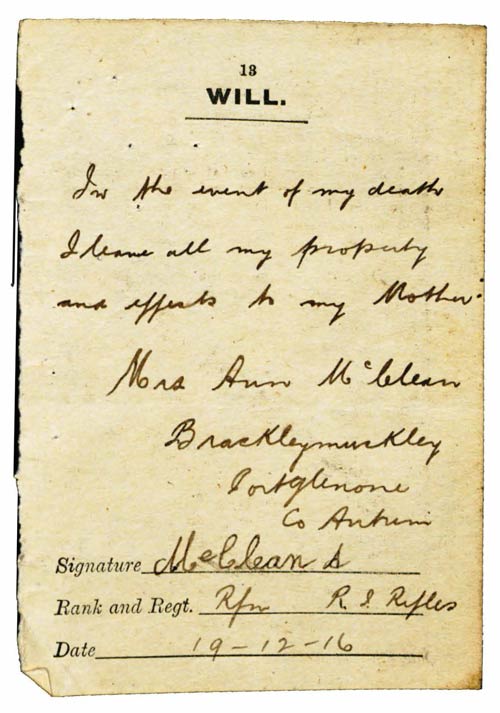 13
WILL.
In the event of my death
I leave all my property
and effects to my Mother.
Mrs Ann McClean
Brackleymuckley
Portglenone
Co Antrim
Signature McClean S
Rank and Regt. Rfn R I Rifles
Date 19-12-16